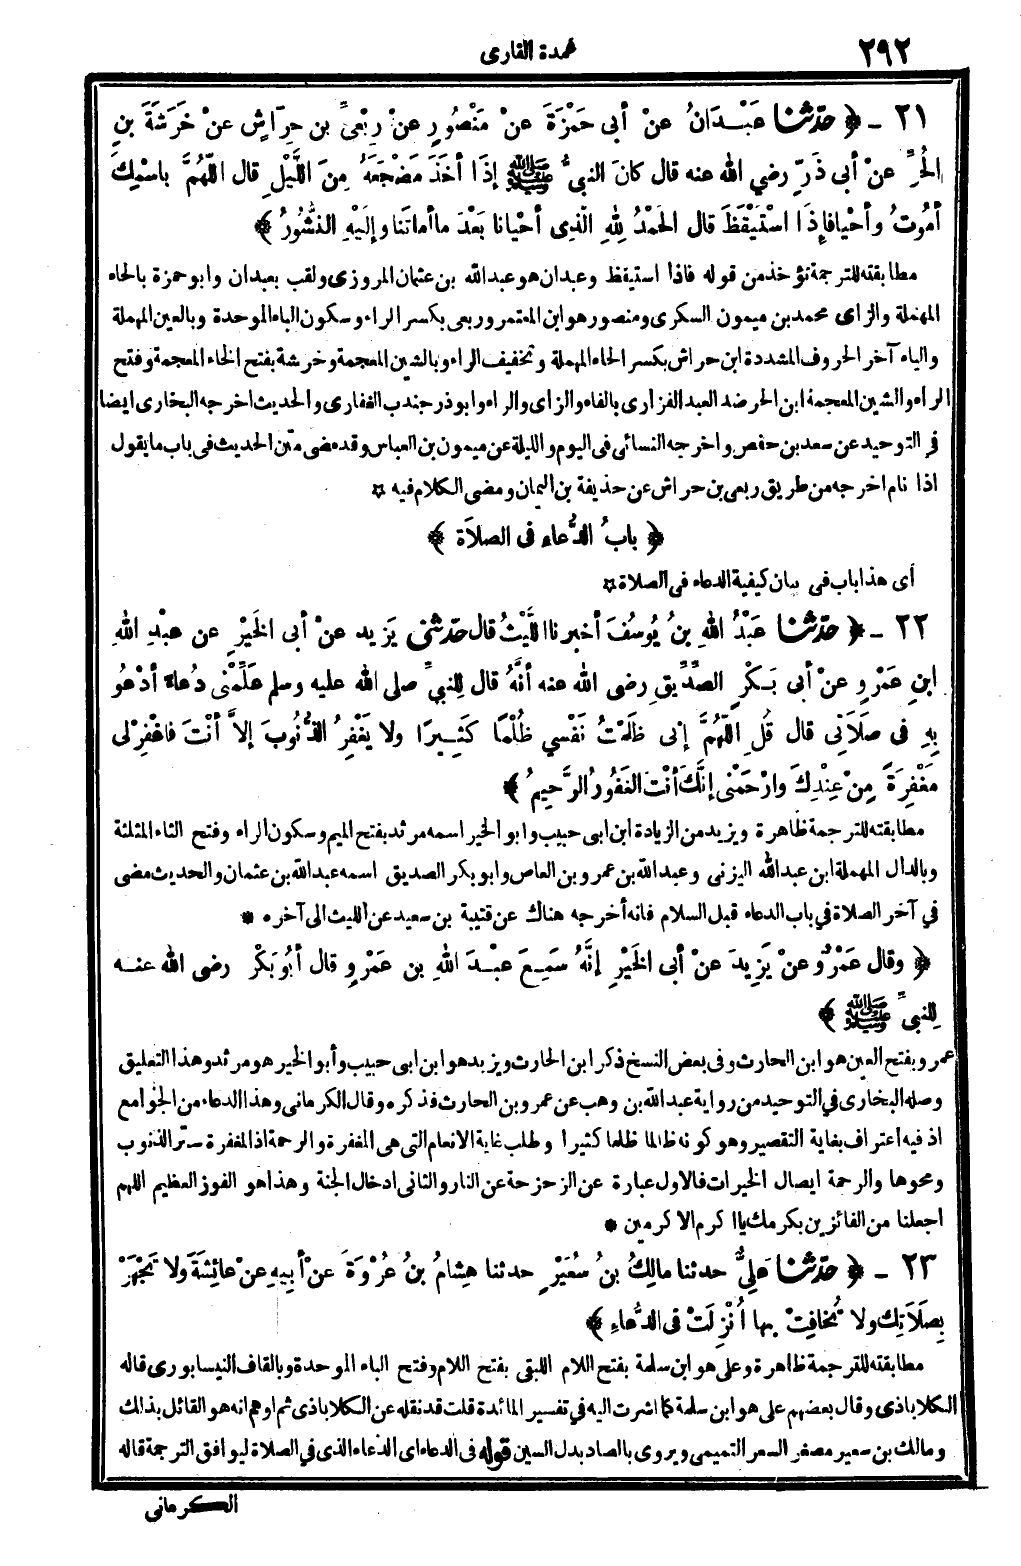 ٢٩٢
عمدة القارى
٢١ ـ ﴿ حدّثنا عَبْدَانُ عنْ أبى حَمْزَةَ عنْ مَنْصُورٍ عنْ رِبْعِىِّ بن حِرَاشٍ عنْ خَرَشَةَ بنِ
الحُرِّ عنْ أبى ذَرّ رضي الله عنه قال كانَ النبىُّ ﷺ إذَا أخَذَ مَضْجَعَهُ مِنَ اللَّيْلِ قال اللّهُمَّ باسْمِكَ
أمُوتُ وأحْيا فإذَا اسْتَيْقَظَ قال الحَمْدُ لِلهِ الَّذِى أحْيانا بَعْدَ ما أماتَنا وإلَيْهِ النُّشُورُ ﴾
مطابقته للترجمة تؤخذ من قوله فاذا استيقظ وعبدان هو عبدالله بن عثمان المروزى ولقب بعبدان وابو حمزة بالحاء
المهملة والزاى محمد بن ميمون السكرى ومنصور هو ابن المعتمر وربعى بكسر الراء وسكون الباء الموحدة وبالعين المهملة
والياء آخر الحروف المشددة ابن حراش بكسر الحاء المهملة وتخفيف الراء وبالشين المعجمة وخرشة بفتح الخاء المعجمة وفتح
الراء والشين المعجمة ابن الحر ضد العبد الفزارى بالفاء والزاى والراء وابو ذر جندب الغفارى والحديث اخرجه البخارى ايضا
فى التوحيد عن سعد بن حفص واخرجه النسائى فى اليوم والليلة عن ميمون بن العباس وقد مضى متن الحديث فى باب ما يقول
اذا نام اخرجه من طريق ربعى بن حراش عن حذيفة بن اليمان ومضى الكلام فيه ☆
﴿ بابُ الدُّعاءِ فى الصلاَة ﴾
أى هذا باب فى بيان كيفية الدعاء فى الصلاة ☆
٢٢ ـ ﴿ حدّثنا عَبْدُ اللهِ بنُ يُوسُفَ أخبرنا اللَّيْثُ قال حدّثنى يَزِيد عنْ أبى الخَيْرِ عن عبْدِ اللهِ
ابنِ عَمْرٍو عنْ أبى بَكْرٍ الصِّدِّيقِ رضى الله عنه أنَّهُ قال لِلنبىِّ صلى الله عليه وسلم عَلِّمْنى دُعاءً أدْعُو
بِهِ فى صلاَتى قال قُلِ اللّهُمَّ إنى ظَلَمْتُ نَفْسِي ظُلْمًا كَثِيرًا ولا يَغْفِرُ الذُّنُوبَ إلاَّ أنْتَ فاغْفِرْ لى
مَغْفِرَةً مِنْ عِنْدِكَ وارْحَمْنى إنَّكَ أنْتَ الغَفُورُ الرَّحِيمُ ﴾
مطابقته للترجمة ظاهرة ويزيد من الزيادة ابن ابى حبيب وابو الخير اسمه مرثد بفتح الميم وسكون الراء وفتح الثاء المثلثة
وبالدال المهملة ابن عبدالله اليزنى وعبدالله بن عمرو بن العاص وابو بكر الصديق اسمه عبدالله بن عثمان والحديث مضى
في آخر الصلاة في باب الدعاء قبل السلام فانه أخرجه هناك عن قتيبة بن سعيد عن الليث الى آخره *
﴿ وقال عَمْرٌو عنْ يَزِيدَ عنْ أبى الخَيْرِ إنَّهُ سَمِعَ عبْدَ اللهِ بن عَمْرٍو قال أبُو بَكْر رضى الله عنه
لِلنبىِّ ﷺ ﴾
عمرو بفتح العين هو ابن الحارث وفى بعض النسخ ذكر ابن الحارث ويزيد هو ابن ابى حبيب وأبو الخير هو مرثد وهذا التعليق
وصله البخارى في التوحيد من رواية عبدالله بن وهب عن عمرو بن الحارث فذكره وقال الكرمانى وهذا الدعاء من الجوامع
اذ فيه اعتراف بغاية التقصير وهو كونه ظالما ظلما كثيرا وطلب غاية الانعام التى هى المغفرة والرحمة اذ المغفرة ستر الذنوب
ومحوها والرحمة ايصال الخيرات فالاول عبارة عن الزحزحة عن النار والثانى ادخال الجنة وهذا هو الفوز العظيم اللهم
اجعلنا من الفائزين بكرمك يا اكرم الاكرمين *
٢٣ ـ ﴿ حدّثنا علِىٌّ حدثنا مالِكُ بنُ سُعَيْرٍ حدثنا هِشامُ بنُ عُرْوَةَ عنْ أبِيهِ عنْ عائِشَةَ ولا تَجْهَرْ
بِصَلاَتِكَ ولا تُخافِتْ بِها أُنْزِلَتْ فى الدُّعاءِ ﴾
مطابقته للترجمة ظاهرة وعلى هو ابن سلمة بفتح اللام اللبقى بفتح اللام وفتح الباء الموحدة وبالقاف النيسابورى قاله
الكلاباذى وقال بعضهم على هو ابن سلمة كما اشرت اليه في تفسير المائدة قلت قد نقله عن الكلاباذى ثم اوهم انه هو القائل بذلك
ومالك بن سعير مصغر السعر التميمى ويروى بالصاد بدل السين قوله فى الدعاء اى الدعاء الذى في الصلاة ليوافق الترجمة قاله
الكرمانى